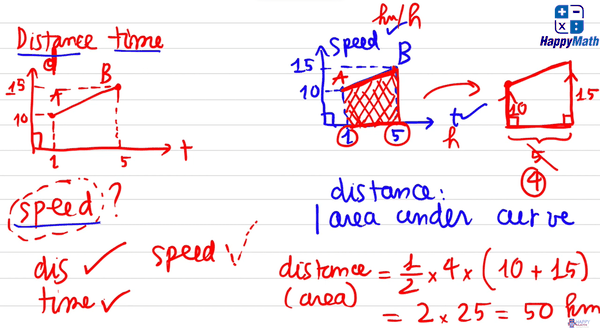 HappyMath
Distance time
d
15
10
A
B
1
5
t
speed ?
dis ✓
time ✓
speed ✓
km/h
speed
15
10
A
B
1
5
t
h
10
15
5
4
distance:
area under curve
distance = 1/2 × 4 × (10 + 15)
(area)
= 2 × 25 = 50 km